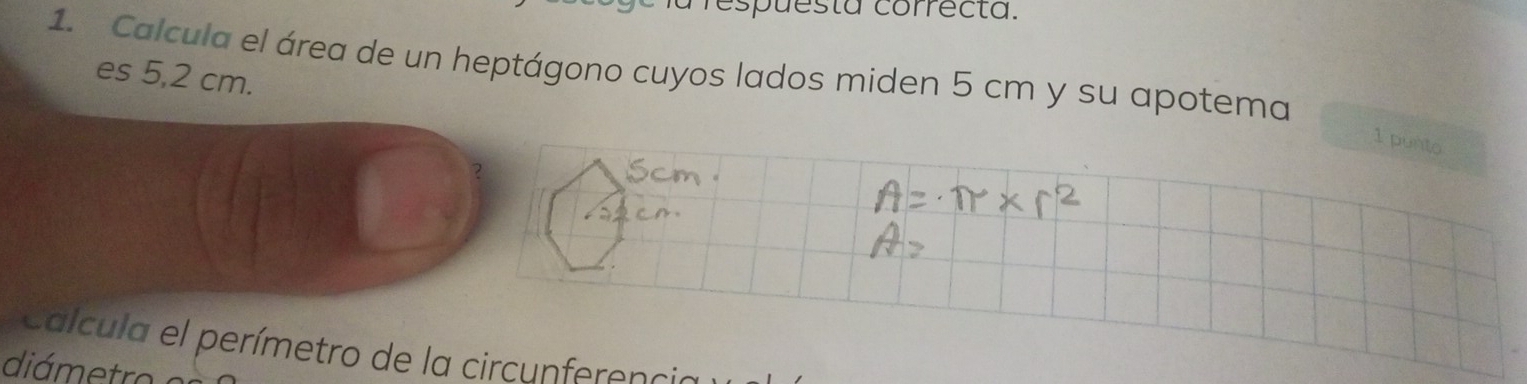 la respuesta correcta.
1. Calcula el área de un heptágono cuyos lados miden 5 cm y su apotema
es 5,2 cm.
1 punto
?
5cm.
cm.
A = π × r²
A =
Calcula el perímetro de la circunferencia
diámetro